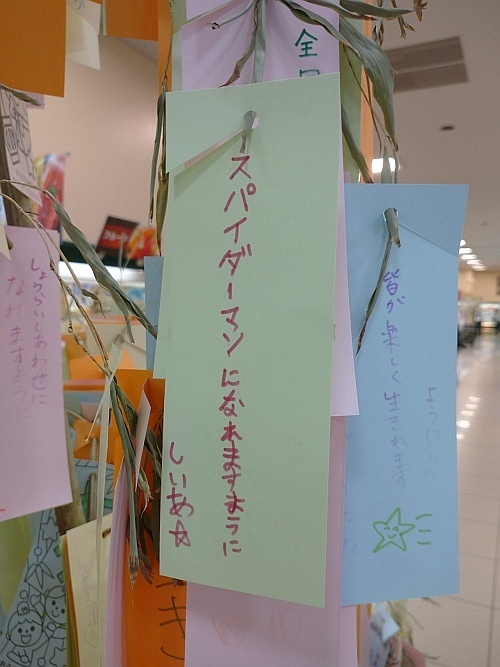 スパイダーマンになれますように
しいあ☆
皆が楽しく生きれます
ように
しょうらいしあわせに
なれますように
全国
き